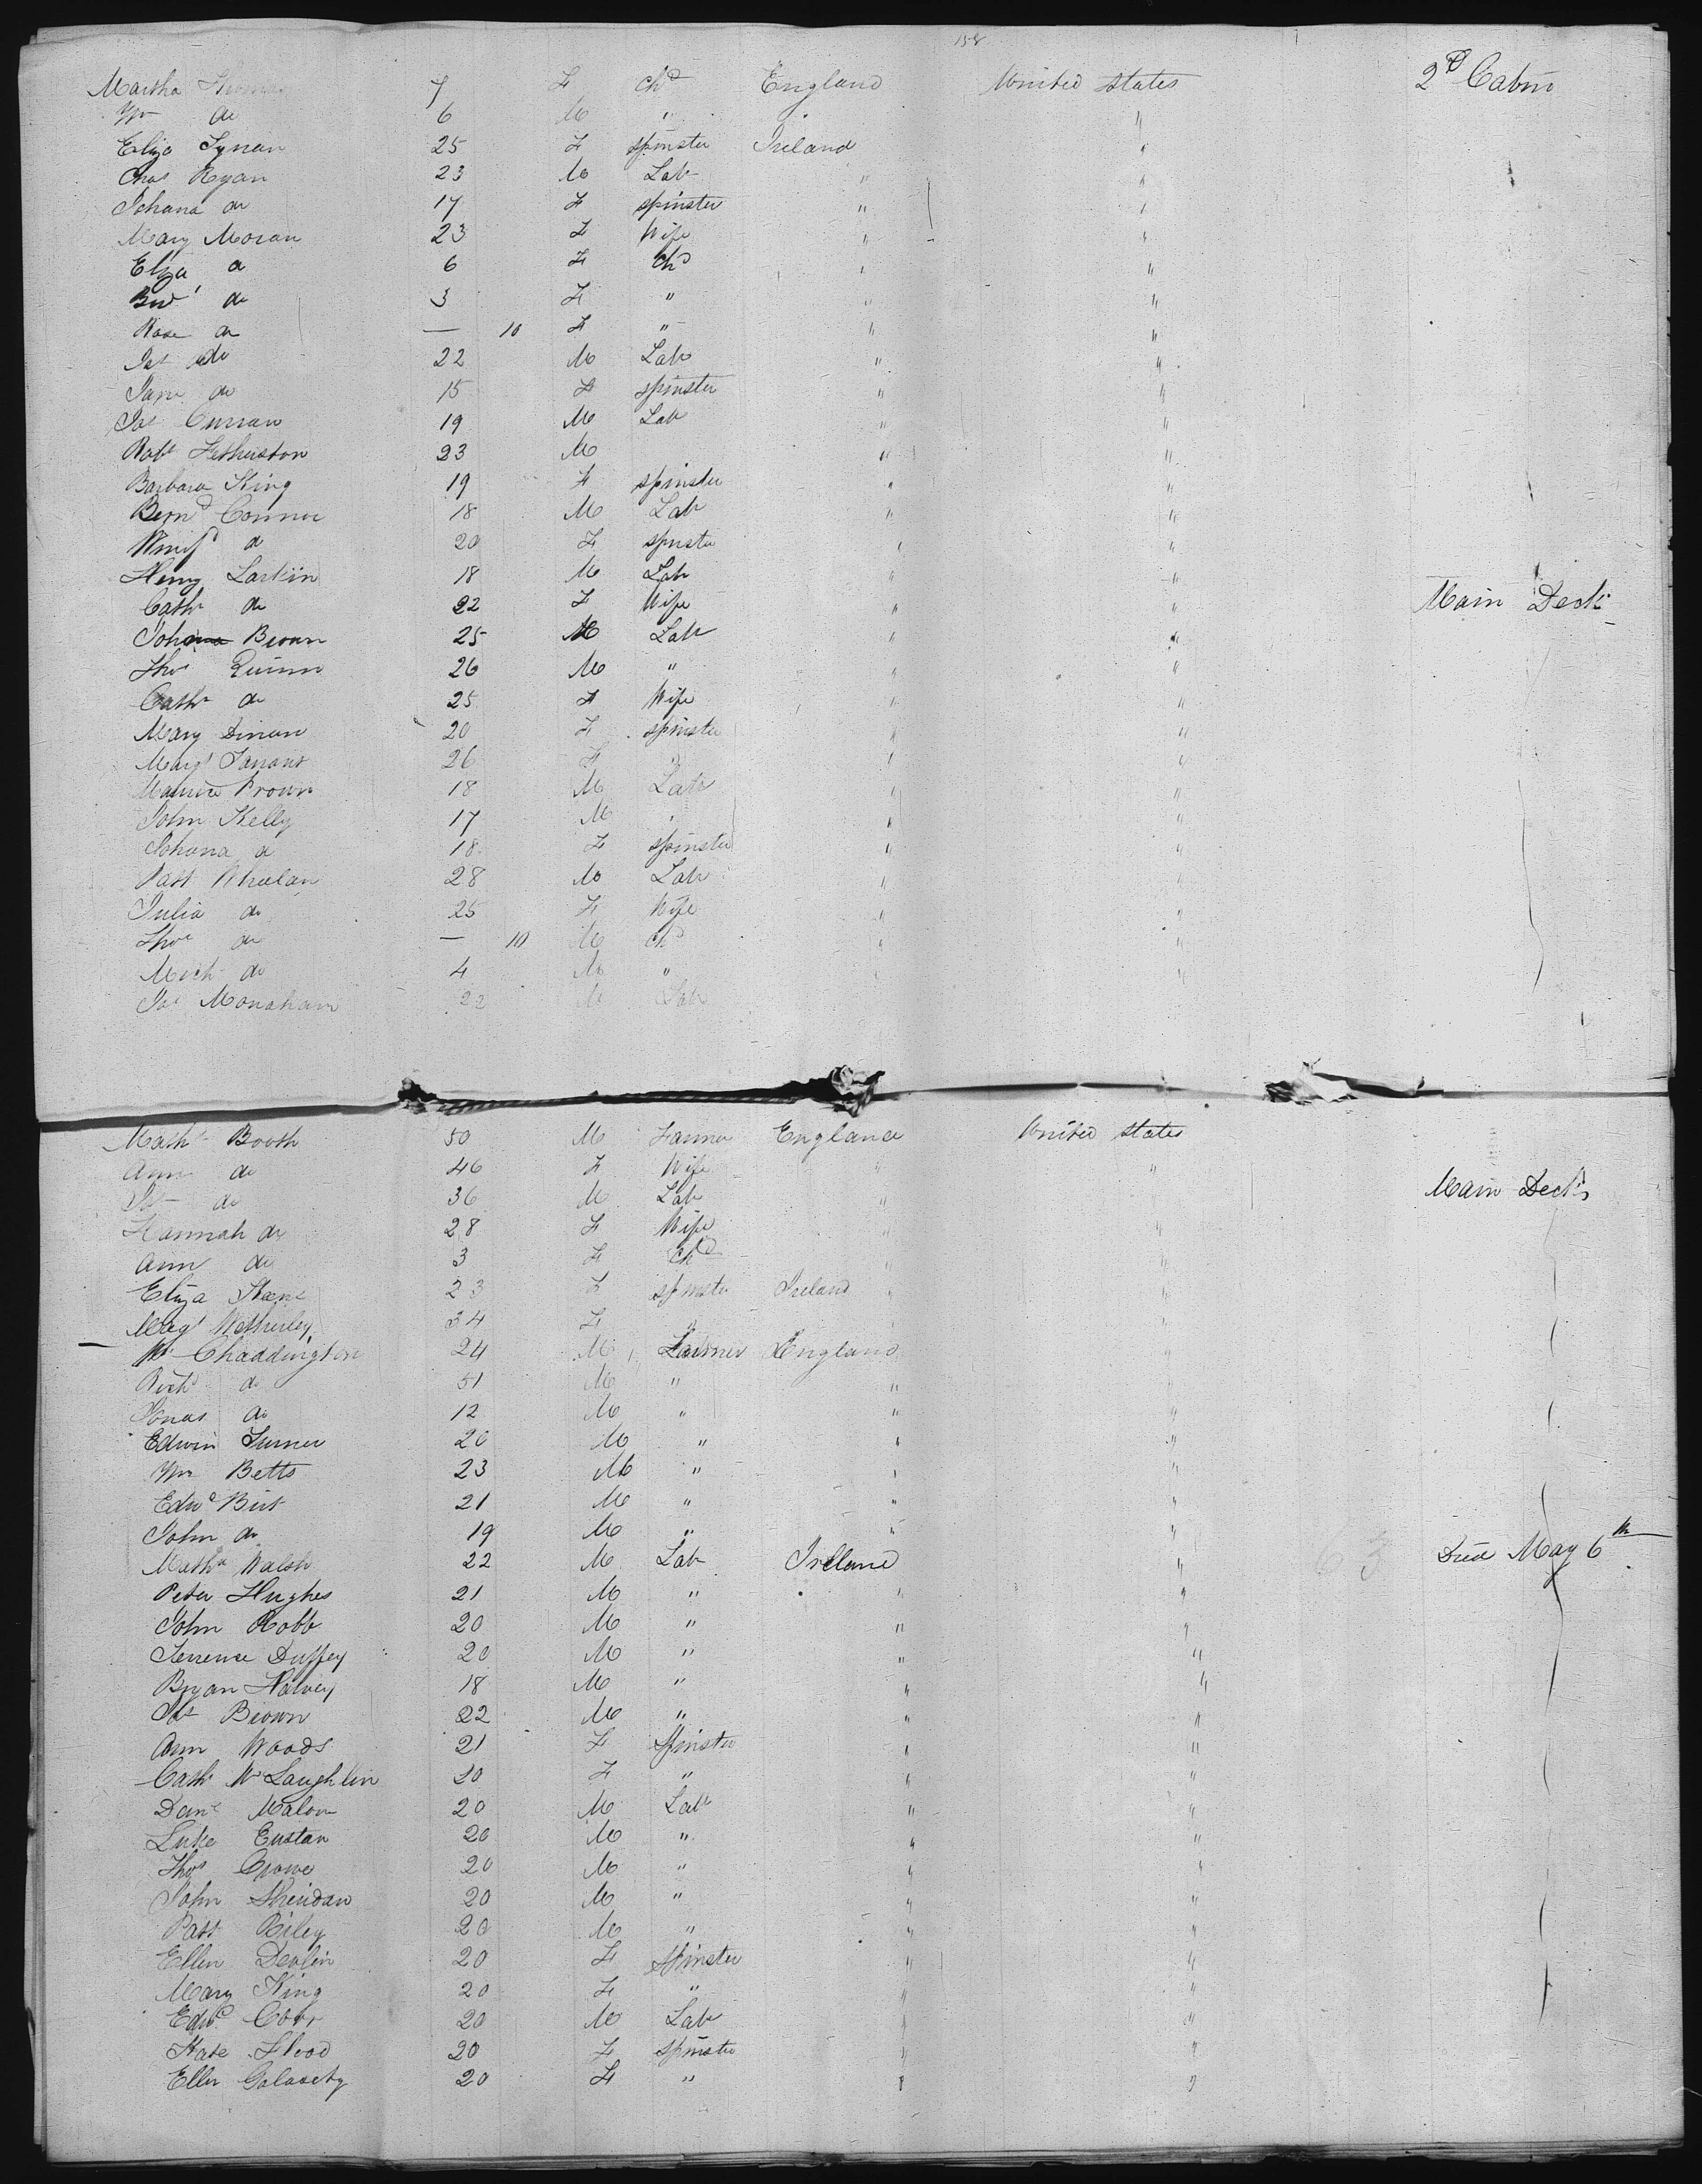 158
Martha Thomas 7 F Chd England United States 2d Cabin
Wm do 6 M " "
Eliza Synan 25 F spinster Ireland "
Chas Ryan 23 M Lab " "
Johana do 17 F spinster " "
Mary Moran 23 F Wife " "
Eliza do 6 F Chd " "
Bird do 3 F " " "
Rose do — 10 F " " "
Pat do 22 M Lab " "
Jane do 15 F spinster " "
Jas Curran 19 M Lab " "
Robt Fetherston 23 M " "
Barbara King 19 F spinster " "
Bernd Connor 18 M Lab " "
Winifd do 20 F spinster " "
Henry Larkin 18 M Lab " "
Cathe do 22 F Wife " " Main Deck
Johana Brown 25 M Lab " "
Thos Quinn 26 M " " "
Cathe do 25 F Wife " "
Mary Dinan 20 F spinster " "
Margt 26 F " " "
Maurice Brown 18 M Lab " "
John Kelly 17 M " " "
Johana do 18 F spinster " "
Patt Whelan 28 M Lab " "
Julia do 25 F Wife " "
Thos do — 10 M Chd " "
Mich do 4 M " " "
Jas Monaham 22 M Lab
Mathw Booth 50 M Farmer England United States
Ann do 46 F Wife " "
do 36 M Lab " " Main Deck
Hannah do 28 F Wife " "
Ann do 3 F Chd " "
Eliza 23 F spinster Ireland "
Margt Wetherley 34 F " "
Wm Chaddington 24 M Farmer England "
Richd do 51 M " " "
Jonas do 12 M " " "
Edwin Turner 20 M " " "
Wm Betts 23 M " " "
Edwd Birt 21 M " " "
John do 19 M " " "
Mathw Walsh 22 M Lab Ireland " 63 Died May 6th
Peter Hughes 21 M " " "
John Robb 20 M " " "
Terrence Duffey 20 M " " "
Bryan Halvey 18 M " " "
Pat Brown 22 M " " "
Ann Woods 21 F Spinster " "
Cathe McLaughlin 20 F " " "
Danl Malon 20 M Lab " "
Luke Eustan 20 M " " "
Thos Crowe 20 M " " "
John Sheridan 20 M " " "
Patt Riley 20 M " " "
Ellen Devlin 20 F Spinster " "
Mary King 20 F " " "
Edwd Corr 20 M Lab " "
Kate Flood 20 F spinster " "
Ellen 20 F " " "